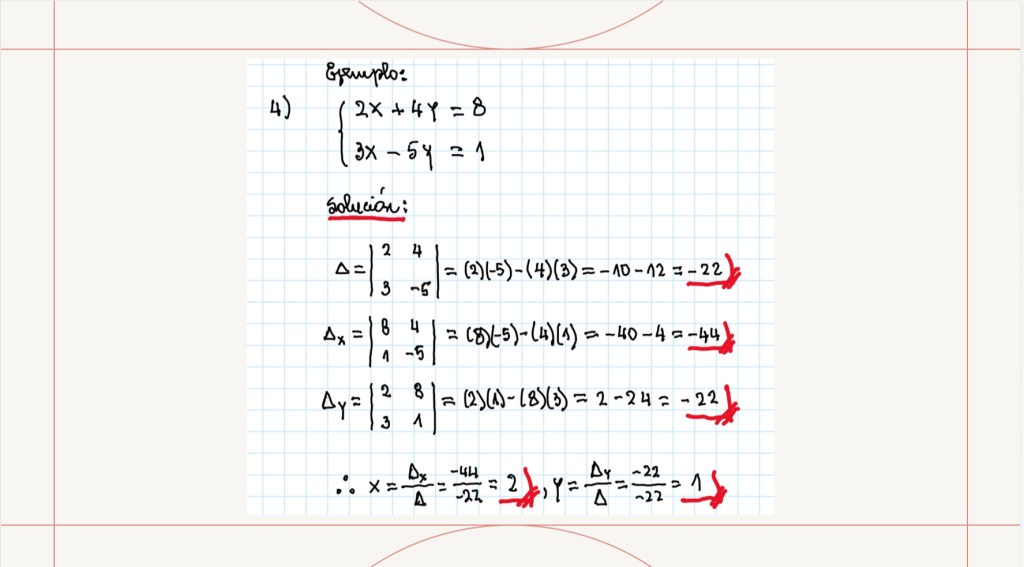 Ejemplo:
4) { 2x + 4y = 8
3x - 5y = 1
Solución:
Δ = | 2 4 | = (2)(-5) - (4)(3) = -10 - 12 = -22
| 3 -5 |
Δx = | 8 4 | = (8)(-5) - (4)(1) = -40 - 4 = -44
| 1 -5 |
Δy = | 2 8 | = (2)(1) - (8)(3) = 2 - 24 = -22
| 3 1 |
∴ x = Δx/Δ = -44/-22 = 2, y = Δy/Δ = -22/-22 = 1